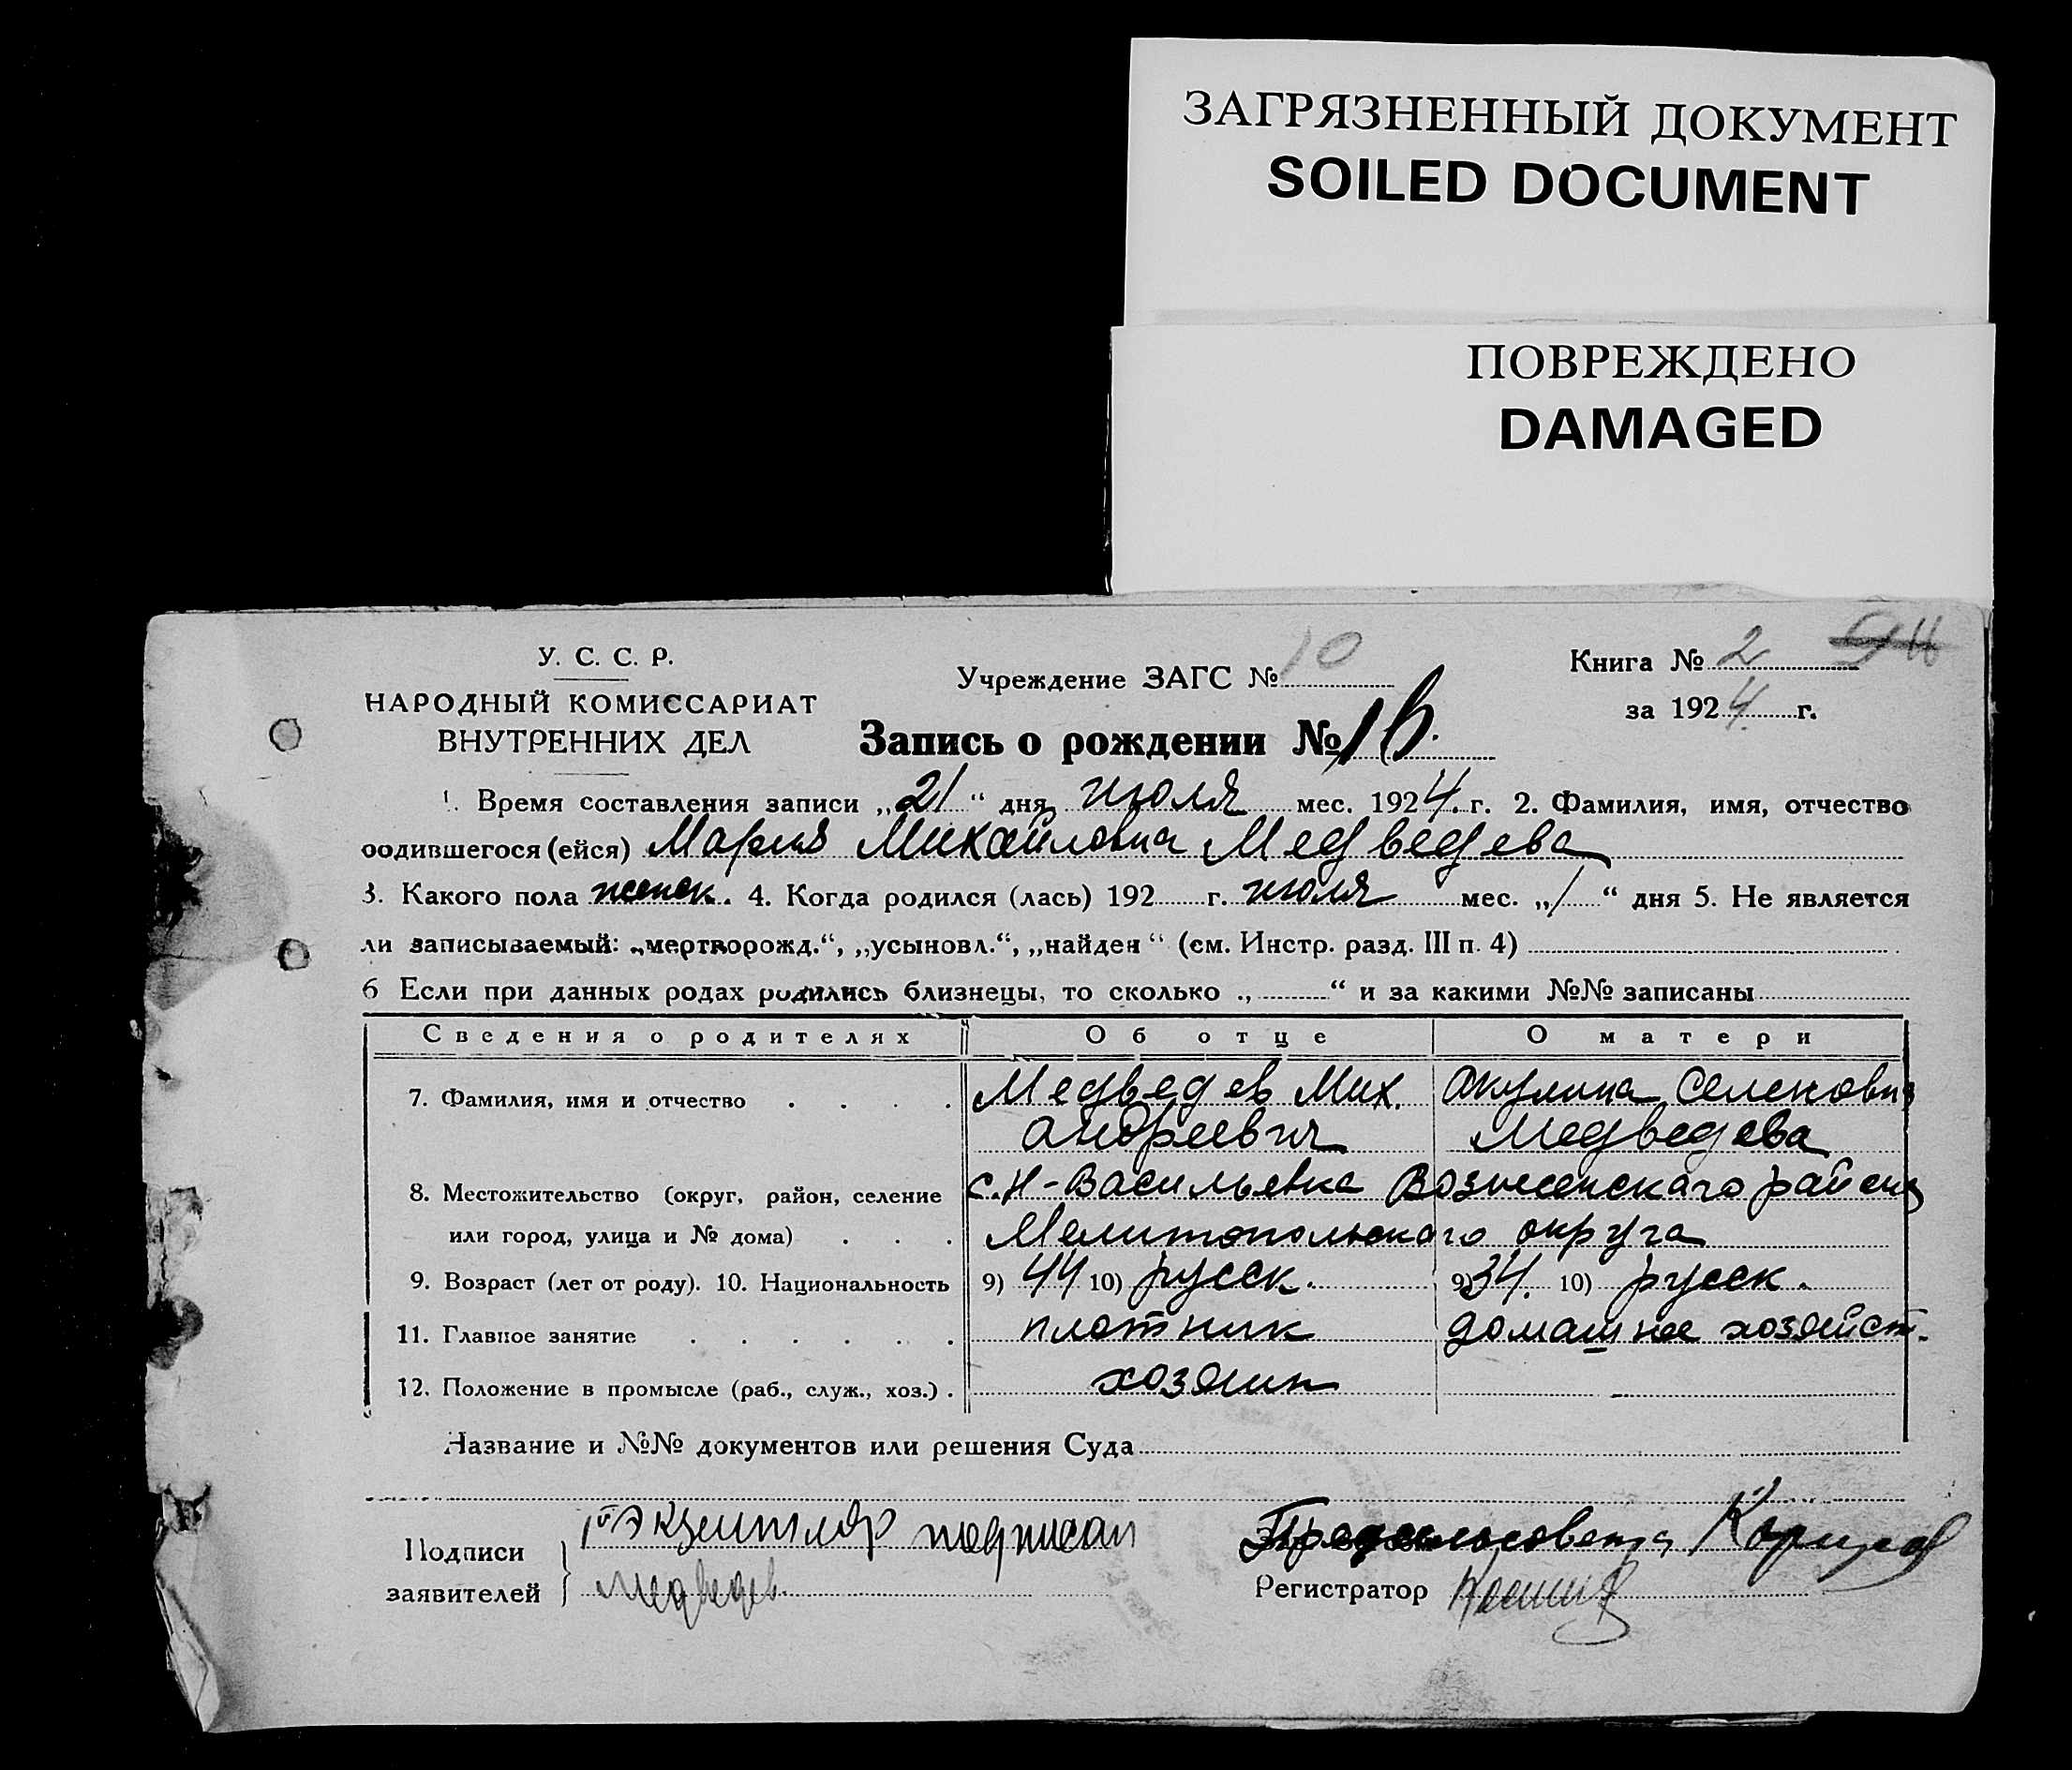 ЗАГРЯЗНЕННЫЙ ДОКУМЕНТ
SOILED DOCUMENT
ПОВРЕЖДЕНО
DAMAGED
У. С. С. Р.
НАРОДНЫЙ КОМИССАРИАТ
ВНУТРЕННИХ ДЕЛ
Учреждение ЗАГС № 10
Книга № 2
за 1924 г.
Запись о рождении №
1. Время составления записи „21“ дня июля мес. 1924. г. 2. Фамилия, имя, отчество
родившегося (ейся) Мария Михайловна Медведева
3. Какого пола женск. 4. Когда родился (лась) 192 г. июля мес. „1“ дня 5. Не является
ли записываемый: „мертворожд.“, „усыновл.“, „найден“ (см. Инстр. разд. III п. 4)
6 Если при данных родах родились близнецы, то сколько „ “ и за какими №№ записаны
Сведения о родителях Об отце О матери
7. Фамилия, имя и отчество Медведев Мих. Акулина
Андреевич Медведева
8. Местожительство (округ, район, селение с. Н-Васильевка Вознесенскаго района
или город, улица и № дома) Мелитопольскаго округа
9. Возраст (лет от роду). 10. Национальность 9) 44 10) русск. 9) 34. 10) русск.
11. Главное занятие плотник домашнее хозяйст.
12. Положение в промысле (раб., служ., хоз.) хозяин
Название и №№ документов или решения Суда
Подписи заявителей
экземпляр подписал
Медведев.
Предсельсовета
Регистратор